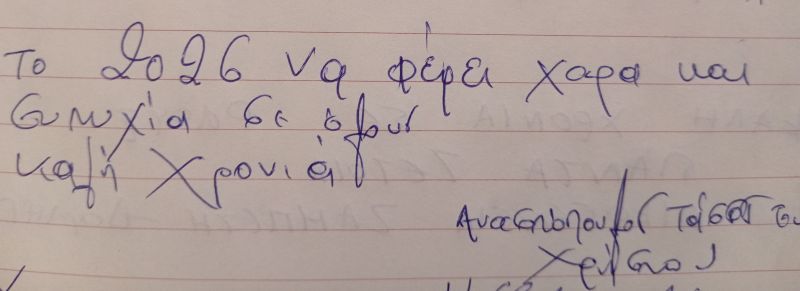 Το 2026 να φέρει χαρα και
ευτυχία σε όλους
καλή χρονιά
Αναστόπουλος Τάσος του
Χρίστου